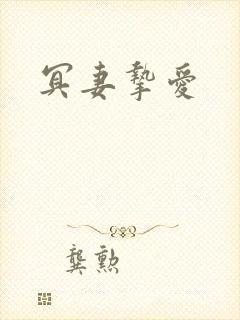 冥妻摯愛
龔勲